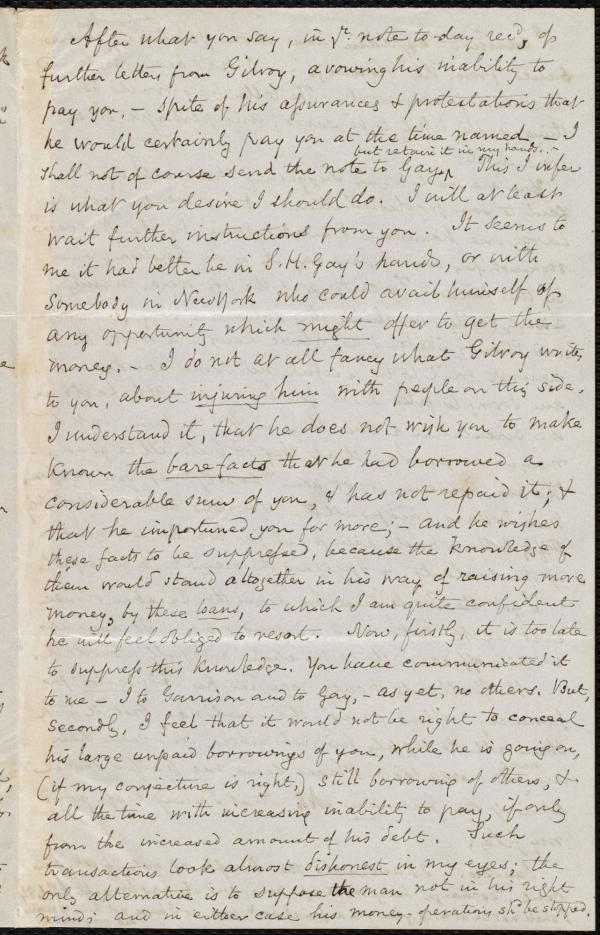 After what you say, in yr. note to-day recd, of
further letters from Gilroy, avowing his inability to
pay you, – spite of his assurances & protestations that
he would certainly pay you at the time named – I
shall not of course send the note to Gay, but retain it in my hands. – This I infer
is what you desire I should do. I will at least
wait further instructions from you. It seems to
me it had better be in S.H. Gay's hands, or with
somebody in New York who could avail himself of
any opportunity which might offer to get the
money. – I do not at all fancy what Gilroy writes
to you, about injuring him with people on this side.
I understand it, that he does not wish you to make
known the bare facts that he had borrowed a
considerable sum of you, & has not repaid it; &
that he importuned you for more; – and he wishes
these facts to be suppressed, because the knowledge of
them would stand altogether in his way of raising more
money, by these loans, to which I am quite confident
he will feel obliged to resort. Now, firstly, it is too late
to suppress this knowledge. You have communicated it
to me – I to Garrison and to Gay, – as yet, no others. But,
secondly, I feel that it would not be right to conceal
his large unpaid borrowings of you, while he is going on,
(if my conjecture is right,) still borrowing of others, &
all the time with increasing inability to pay, if only
from the increased amount of his debt. Such
transactions look almost dishonest in my eyes; the
only alternative is to suppose the man not in his right
mind; and in either case his money-operations shd. be stopped.